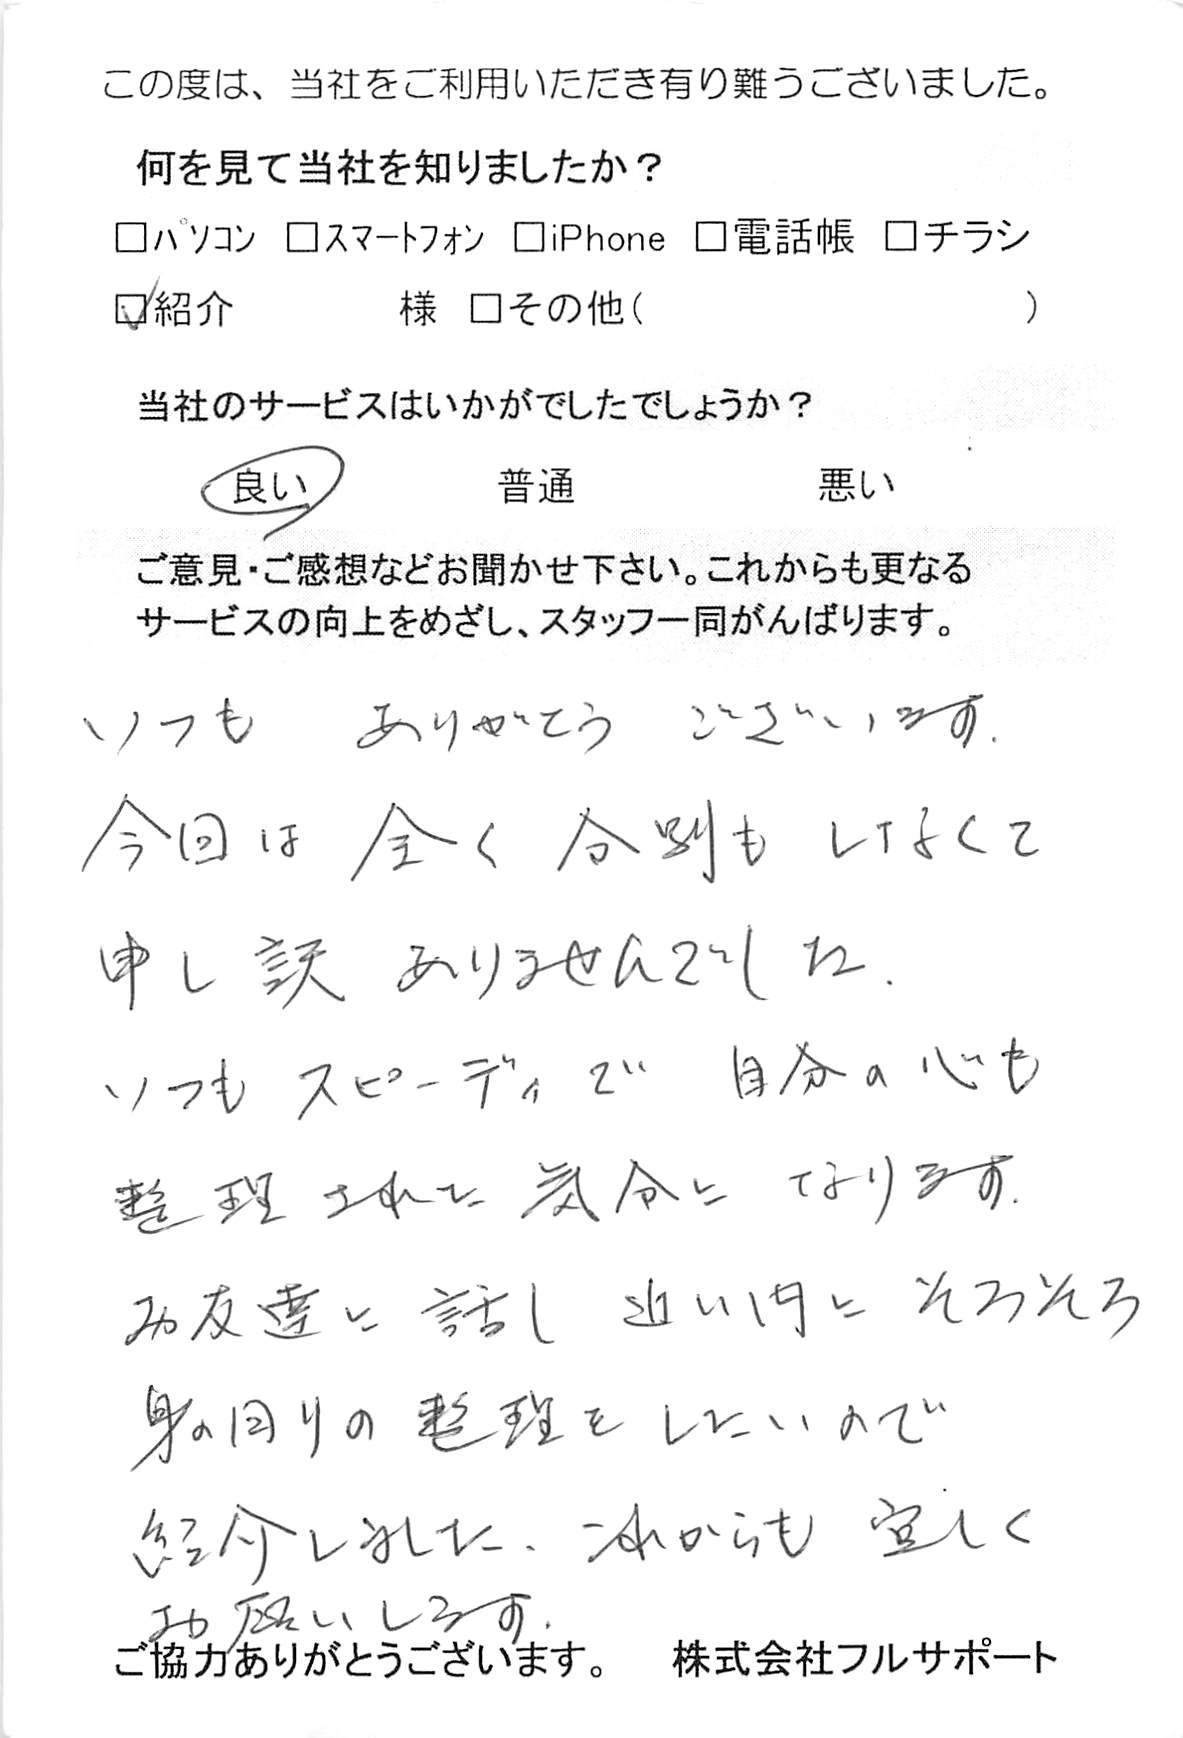 この度は、当社をご利用いただき有り難うございました。
何を見て当社を知りましたか？
□パソコン □スマートフォン □iPhone □電話帳 □チラシ
☑紹介 様 □その他( )
当社のサービスはいかがでしたでしょうか？
良い 普通 悪い
ご意見・ご感想などお聞かせ下さい。これからも更なる
サービスの向上をめざし、スタッフ一同がんばります。
いつも ありがとう ございます.
今回は 全く 分別も しなくて
申し訳 ありませんでした.
いつも スピーディで 自分の心も
整理された 気分に なります.
お友達に 話し 近い内に そろそろ
身の回りの 整理を したいので
紹介しました. これからも 宜しく
お願いします.
ご協力ありがとうございます。 株式会社フルサポート